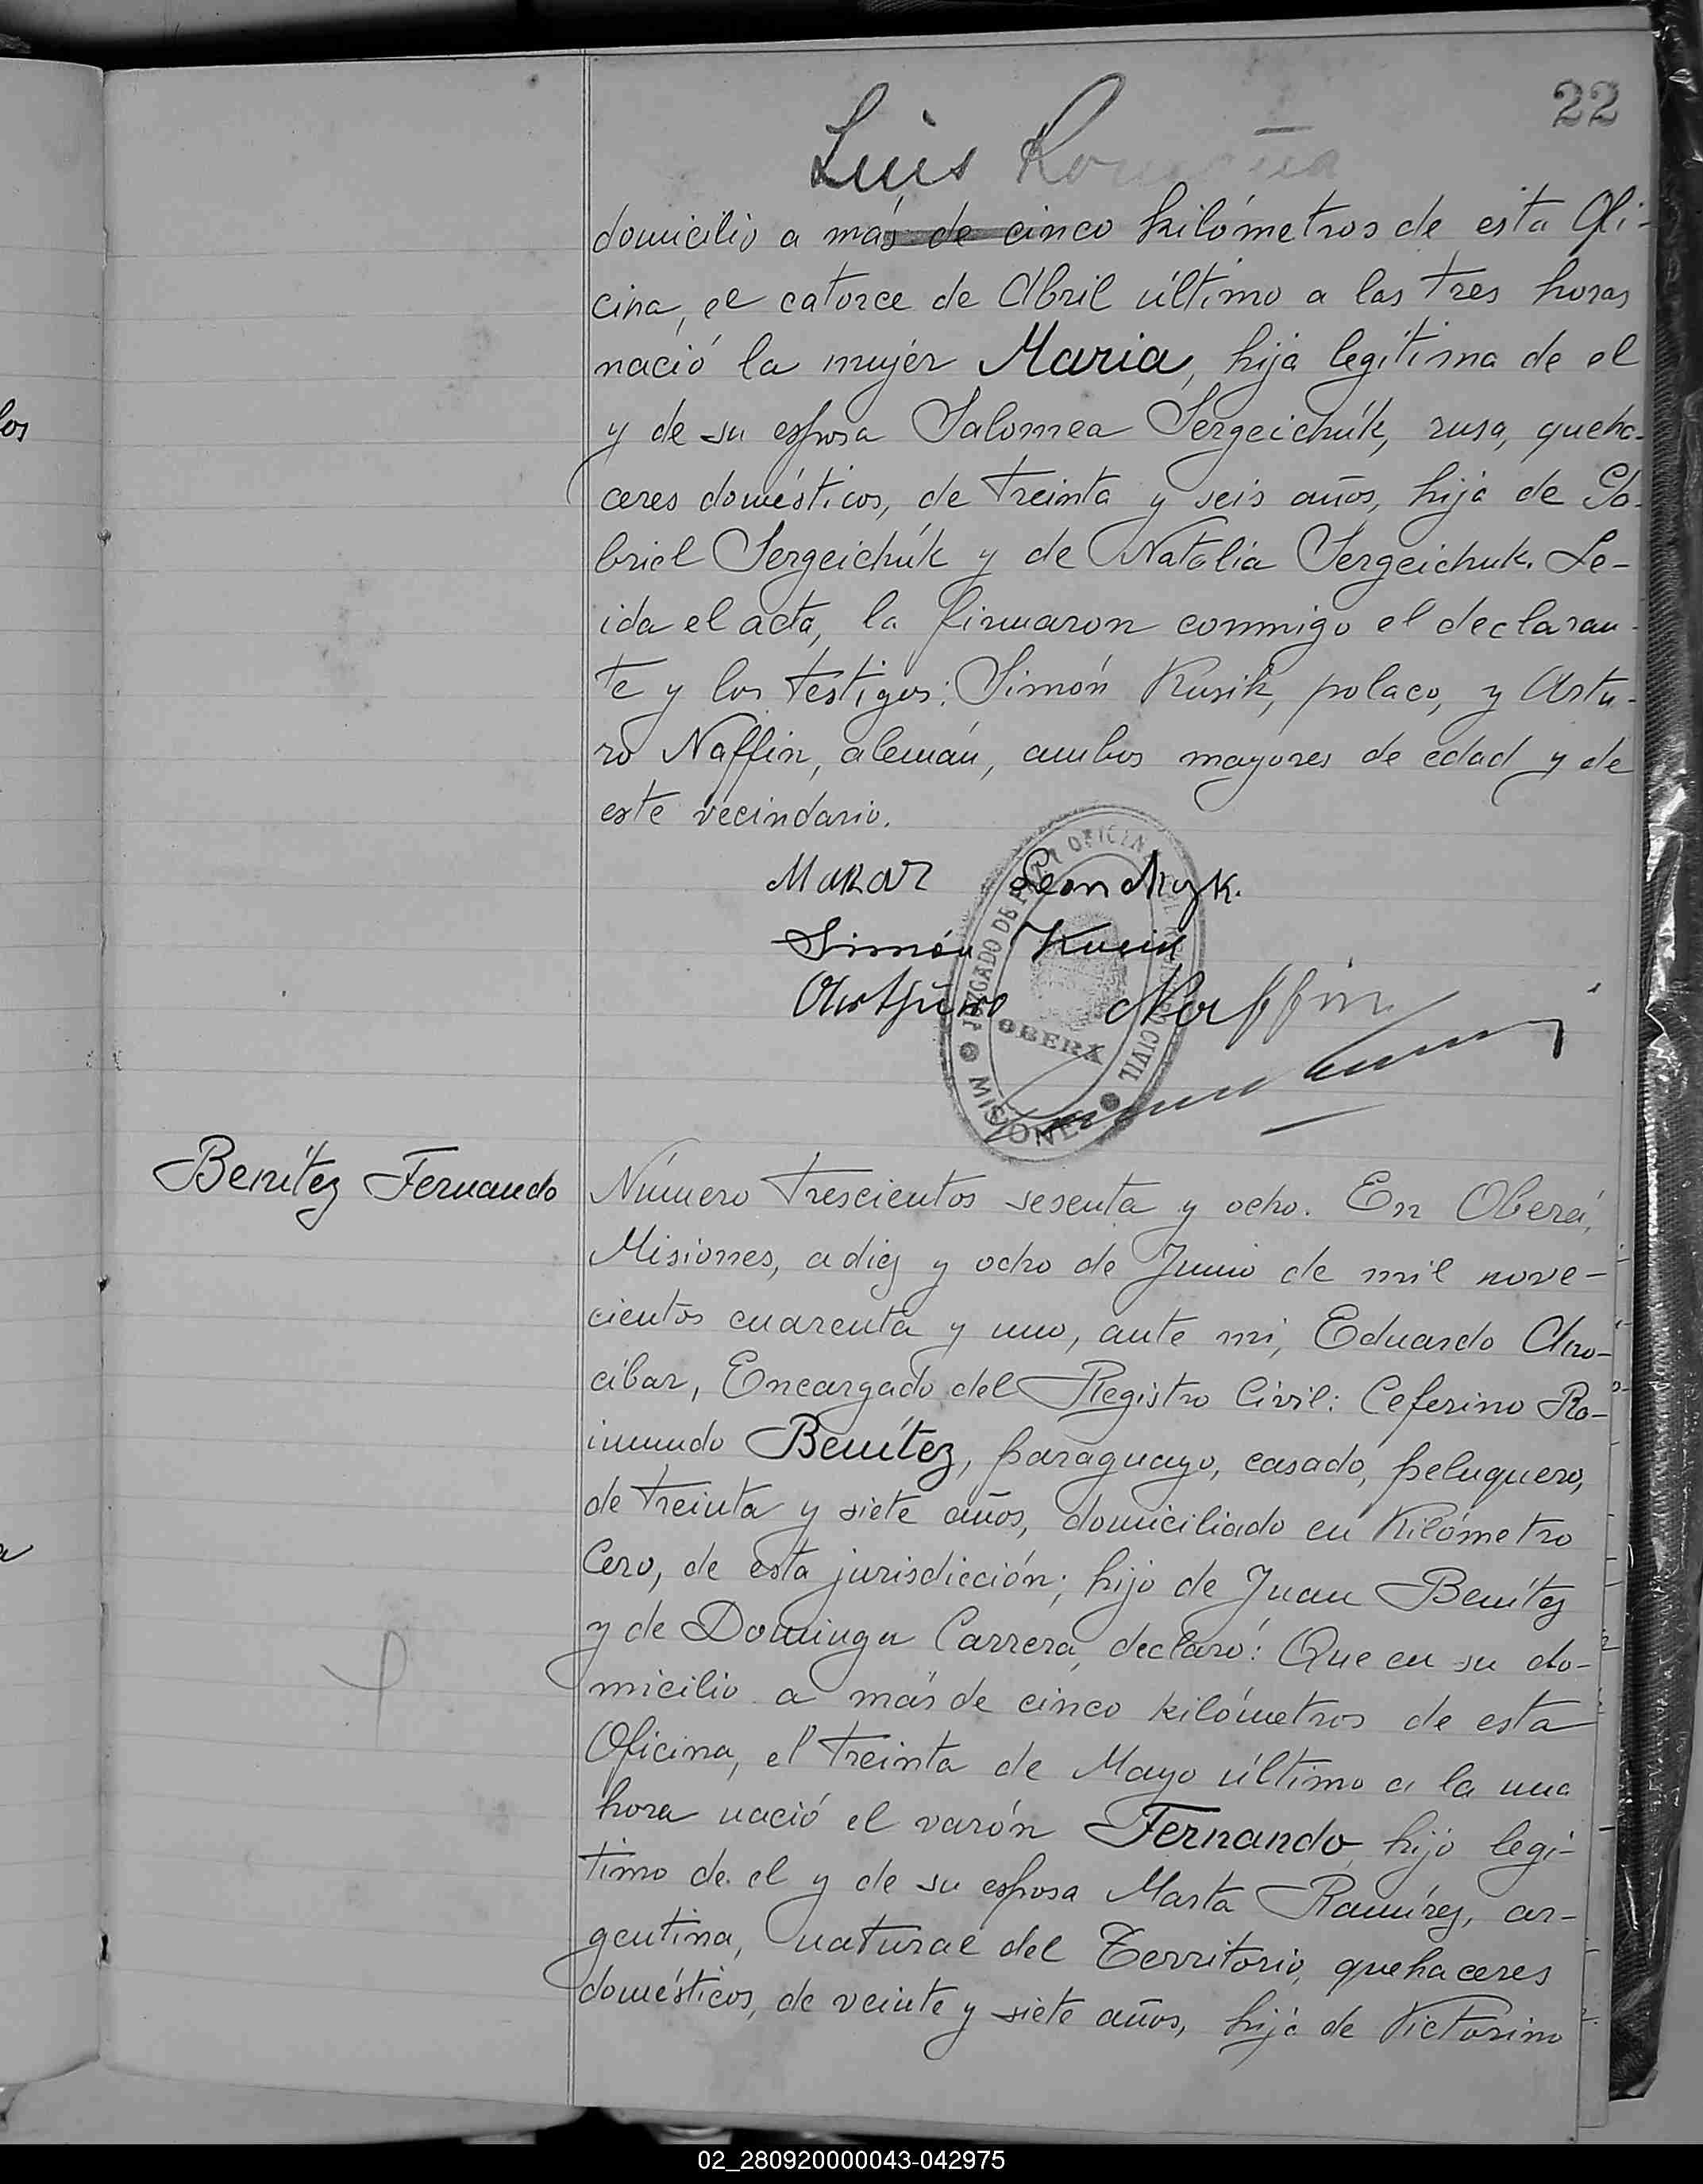 22
Luis
domicilio a más de cinco kilómetros de esta Ofi-
cina, el catorce de Abril último a las tres horas
nació la mujer Maria, hija legítima de el
y de su esposa Salomea Sergeichúk, rusa, queha-
ceres domésticos, de treinta y seis años, hija de Ga-
briel Sergeichúk y de Natalia Sergeichuk. Le-
ida el acta, la firmaron conmigo el declaran-
te y los testigos: Simón Kusik, polaco, y Artu-
ro Naffin, alemán, ambos mayores de edad y de
este vecindario.
Makar
Simón Kusik
Naffin
JUZGADO DE PAZ Y OFICINA CIVIL
OBERA
MISIONES
Benítez Fernando
Número trescientos sesenta y ocho. En Oberá,
Misiones, a diez y ocho de Junio de mil nove-
cientos cuarenta y uno, ante mi, Eduardo Aro-
cibar, Encargado del Registro Civil: Ceferino Ra-
imundo Benítez, paraguayo, casado, peluquero,
de treinta y siete años, domiciliado en Kilómetro
Cero, de esta jurisdicción; hijo de Juan Benítez
y de Dominga Carrera, declaró: Que en su do-
micilio a más de cinco kilómetros de esta
Oficina, el treinta de Mayo último a la una
hora nació el varón Fernando, hijo legí-
timo de el y de su esposa Marta Ramírez, ar-
gentina, natural del Territorio, quehaceres
domésticos, de veinte y siete años, hija de Victorino
02_280920000043-042975